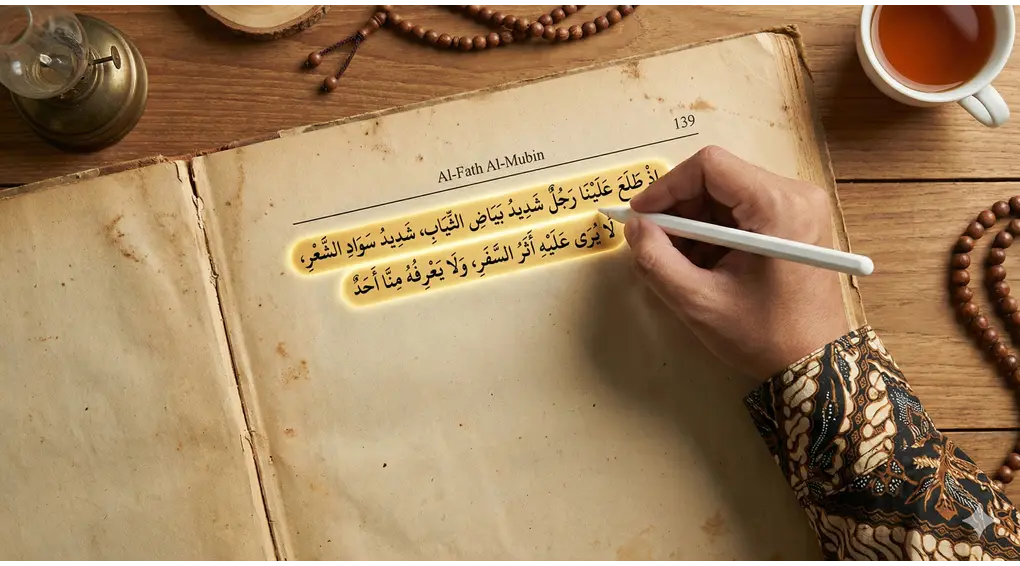 139
Al-Fath Al-Mubin
إِذْ طَلَعَ عَلَيْنَا رَجُلٌ شَدِيدُ بَيَاضِ الثِّيَابِ، شَدِيدُ سَوَادِ الشَّعْرِ،
لَا يُرَى عَلَيْهِ أَثَرُ السَّفَرِ، وَلَا يَعْرِفُهُ مِنَّا أَحَدٌ